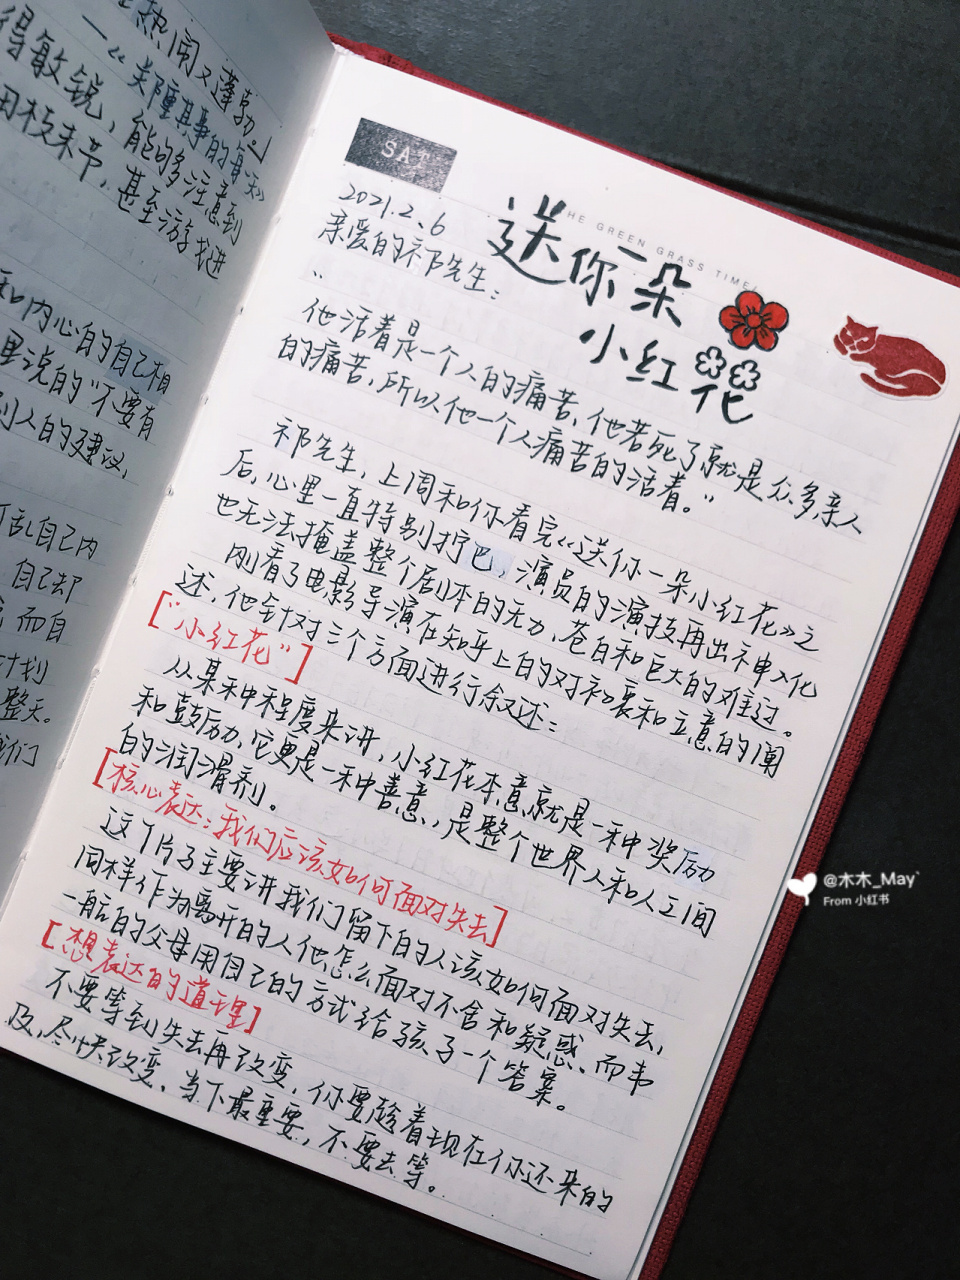 热闹又蓬勃。」
—《关于郑重其事的每一天》
得敏锐，能够多注意到
用枝末节，甚至游戏进
和内心的自己相
里说的“不要有
别人的建议，
打乱自己内
自己却
而自
计划
整天。
我们
SAT
THE GREEN GRASS TIME/
送你一朵
小红花
2021.2.6
亲爱的祁先生：
“
他活着是一个人的痛苦，他若死了就是众多亲人
的痛苦，所以他一个人痛苦的活着。”
祁先生，上周和你看完《送你一朵小红花》之
后，心里一直特别拧巴，演员的演技再出神入化
也无法掩盖整个剧本的无力、苍白和巨大的难过。
刚看了电影导演在知乎上的对初衷和立意的阐
述，他针对三个方面进行叙述：
[“小红花”]
从某种程度来讲，小红花本意就是一种奖励
和鼓励，它更是一种善意，是整个世界人和人之间
的润滑剂。
[核心表达：我们应该如何面对失去]
这个片子主要讲我们留下的人该如何面对失去，
同样作为离开的人他怎么面对不舍和疑惑、而韦
一航的父母用自己的方式给孩子一个答案。
[想表达的道理]
不要等到失去再改变，你要趁着现在你还来的
及，尽快改变，当下最重要，不要去等。
@木木_May`
From 小红书